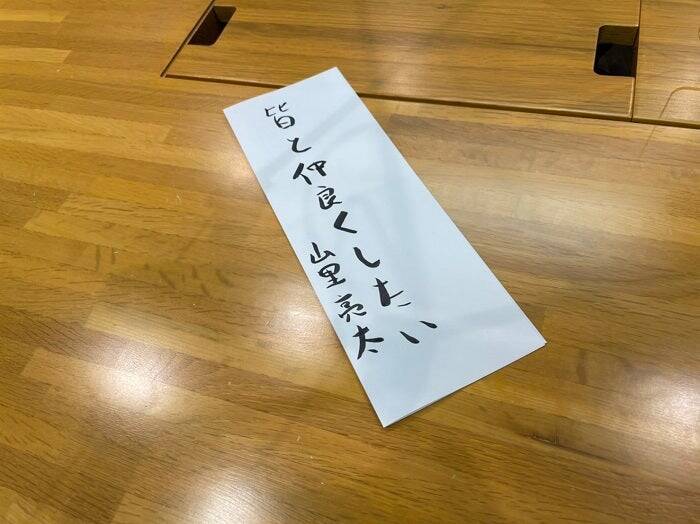 皆と仲良くしたい
山里亮太